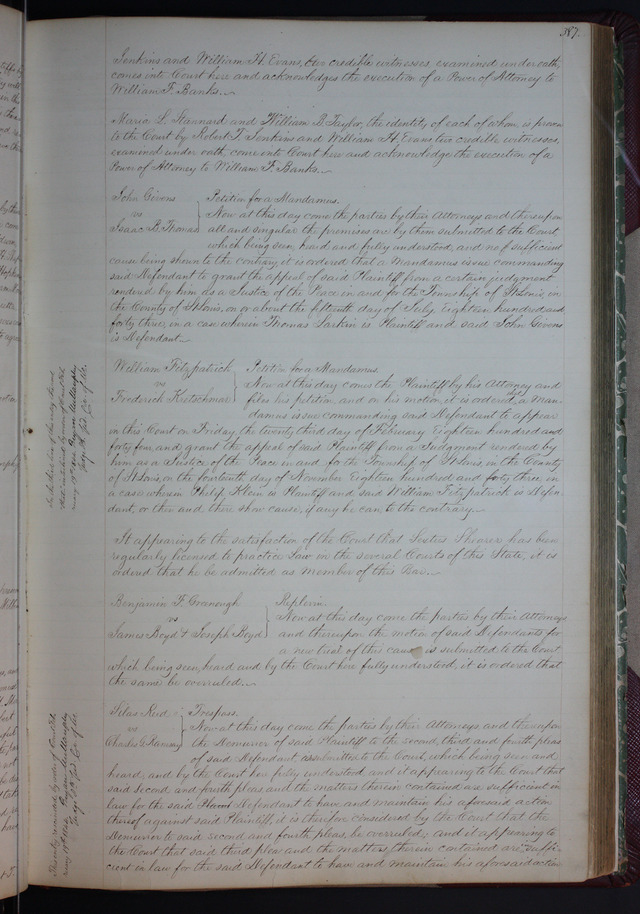 387.
Jenkins and William H. Evans, two credible witnesses, examined under oath,
comes into Court here and acknowledges the execution of a Power of Attorney to
William F. Banks.
Maria L. Stannard and William B. Taylor, the identity of each of whom is proven
to the Court by Robert T. Jenkins and William H. Evans two credible witnesses,
examined under oath, come into Court here and acknowledge the execution of a
Power of Attorney to William F. Banks.
John Givens
vs
Isaac B. Thomas
Petition for a Mandamus.
Now at this day come the parties by their Attorneys and thereupon
all and singular the premises are by them submitted to the Court
which being seen, heard and fully understood, and no sufficient
cause being shown to the contrary it is ordered that a Mandamus issue commanding
said Defendant to grant the appeal of said Plaintiff from a certain judgment
rendered by him as a Justice of the Peace in and for the Township of St. Louis, in
the County of St. Louis, on or about the fifteenth day of July, Eighteen hundred and
forty three, in a case wherein Thomas Larkin is Plaintiff and said John Givens
is Defendant.
William Fitzpatrick
vs
Frederick Kretschmar
Petition for a Mandamus.
Now at this day comes the Plaintiff by his Attorney and
files his petition, and on his motion, it is ordered, a Man-
damus issue commanding said Defendant to appear
in this Court on Friday the twenty third day of February Eighteen hundred and
forty four, and grant the appeal of said Plaintiff from a Judgment rendered by
him as a Justice of the Peace in and for the Township of St. Louis, on the County
of St. Louis, on the fourteenth day of November Eighteen hundred and forty three, in
a case wherein Philip Klein is Plaintiff and said William Fitzpatrick is Defen-
dant, or then and there show cause, if any he can to the contrary.
It appearing to the satisfaction of the Court that Sextus Shearer has been
regularly licensed to practice Law in the several Courts of this State, it is
ordered that he be admitted as member of this Bar.
Benjamin F. Cravenough
vs
James Boyd & Joseph Boyd
Replevin.
Now at this day come the parties by their Attorneys
and thereupon the motion of said Defendants for
a new trial of this cause is submitted to the Court
which being seen, heard and by the Court here fully understood, it is ordered that
the same be overruled.
Silas Reed
vs
Charles G. Ramsay
Trespass.
Now at this day come the parties by their Attorneys and thereupon
the Demurrer of said Plaintiff to the second, third and fourth pleas
of said Defendant is submitted to the Court, which being seen and
heard, and by the Court here fully understood and it appearing to the Court that
said second and fourth pleas and the matters therein contained are sufficient in
law for the said Defendant to have and maintain his aforesaid action
thereof against said Plaintiff, it is therefore considered by the Court that the
Demurrer to said second and fourth pleas, be overruled; and it appearing to
the Court that said third plea and the matters therein contained are insuffi-
cient in law for the said Defendant to have and maintain his aforesaid action